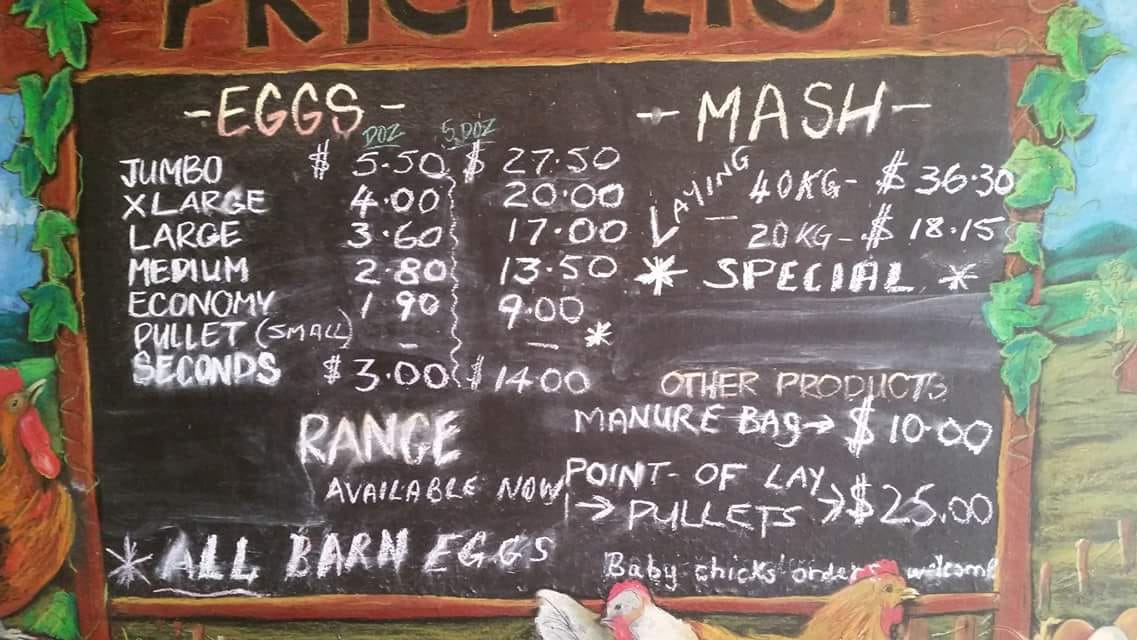 PRICE LIST
-EGGS-
DOZ 5 DOZ
JUMBO $ 5.50 $ 27.50
XLARGE 4.00 20.00
LARGE 3.60 17.00
MEDIUM 2.80 13.50
ECONOMY 1.90 9.00
PULLET (SMALL) - - *
SECONDS $3.00 $14.00
RANGE
AVAILABLE NOW
* ALL BARN EGGS
-MASH-
LAYING
40KG- $36.30
20KG- $18.15
* SPECIAL *
OTHER PRODUCTS
MANURE BAg→ $10.00
POINT-OF LAY
→ PULLETS → $25.00
Baby chicks orders welcome